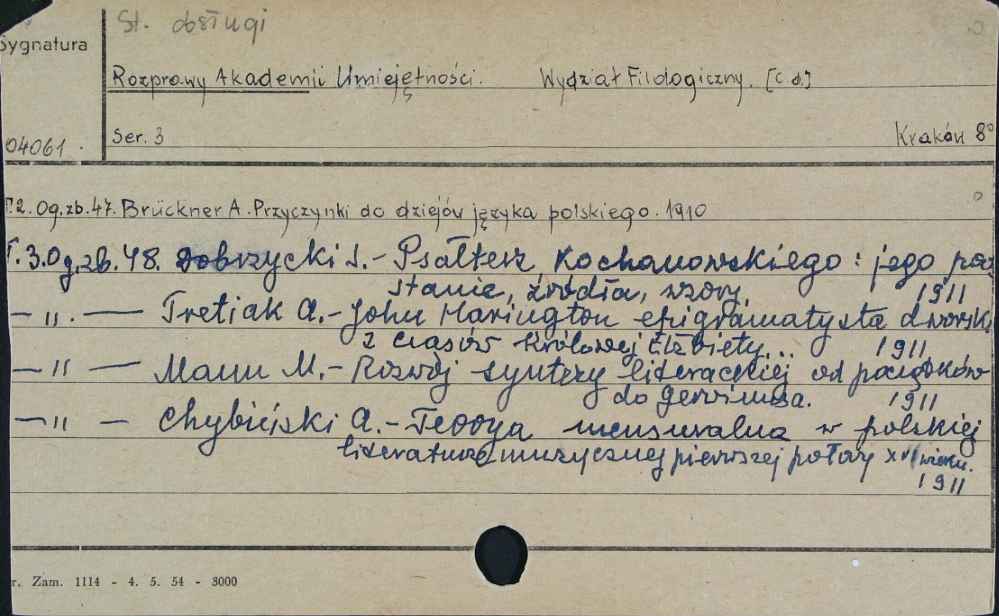 St. obsługi
Sygnatura
Rozprawy Akademii Umiejętności. Wydział Filologiczny. [C.d.]
04061. Ser. 3 Kraków 8°
T.2. Og.zb.47. Brückner A. Przyczynki do dziejów języka polskiego. 1910
T.3. Og.zb.48. Dobrzycki S.- Psałterz Kochanowskiego: jego pow
stanie, źródła, wzory, 1911
— " — Tretiak A.- John Harington epigramatysta dworski
z czasów Królowej Elżbiety... 1911
— " — Mann M.- Rozwój syntezy literackiej od początków
do Gervinusa. 1911
— " — Chybiński A.- Teorya mensuralna w polskiej
literaturze muzycznej pierwszej połowy XVI wieku.
1911
r. Zam. 1114 - 4. 5. 54 - 3000